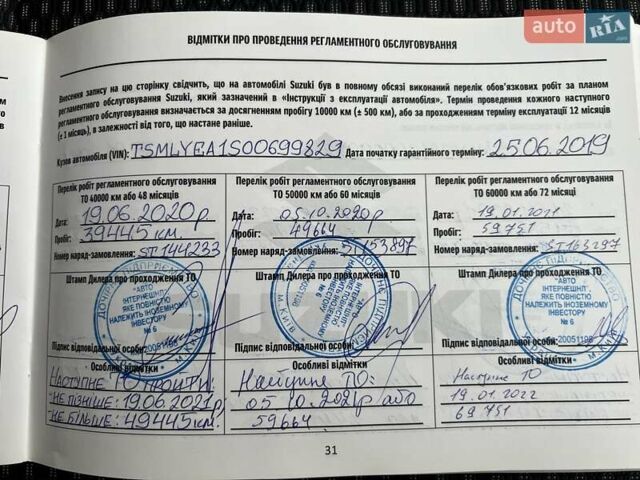 auto RIA.com
ВІДМІТКИ ПРО ПРОВЕДЕННЯ РЕГЛАМЕНТНОГО ОБСЛУГОВУВАННЯ
Внесення запису на цю сторінку свідчить, що на автомобілі Suzuki був в повному обсязі виконаний перелік обов'язкових робіт за планом
регламентного обслуговування Suzuki, який зазначений в «Інструкції з експлуатації автомобіля». Термін проведення кожного наступного
регламентного обслуговування визначається за досягненням пробігу 10000 км (± 500 км), або за проходженням терміну експлуатації 12 місяців
(± 1 місяць), в залежності від того, що настане раніше.
Кузов автомобіля (VIN): TSMLYEA1S00699829 Дата початку гарантійного терміну: 25.06.2019
Перелік робіт регламентного обслуговування
ТО 40000 км або 48 місяців
Дата: 19.06.2020р
Пробіг: 39445 км.
Номер наряд-замовлення: ST144233
Штамп Дилера про проходження ТО
ДОЧІРНЄ ПІДПРИЄМСТВО
"АВТО
ІНТЕРНЕШНЛ",
ЯКЕ ПОВНІСТЮ
НАЛЕЖИТЬ ІНОЗЕМНОМУ
ІНВЕСТОРУ
№ 6
м. Київ
Підпис відповідальної особи:
Особливі відмітки
Наступне ТО пройти:
- не пізніше: 19.06.2021р/
- не більше: 49445 км.
Перелік робіт регламентного обслуговування
ТО 50000 км або 60 місяців
Дата: 05.10.2020р
Пробіг: 49664
Номер наряд-замовлення: ST153897
Штамп Дилера про проходження ТО
Підпис відповідальної особи:
Особливі відмітки
Наступне ТО:
05.10.2021р або
59664
Перелік робіт регламентного обслуговування
ТО 60000 км або 72 місяців
Дата: 19.01.2021
Пробіг: 59751
Номер наряд-замовлення: ST163297
Штамп Дилера про проходження ТО
ДОЧІРНЄ ПІДПРИЄМСТВО
"АВТО
ІНТЕРНЕШНЛ",
ЯКЕ ПОВНІСТЮ
НАЛЕЖИТЬ ІНОЗЕМНОМУ
ІНВЕСТОРУ
№ 6
Підпис відповідальної особи:
Особливі відмітки
Наступне ТО
19.01.2022
69751
31